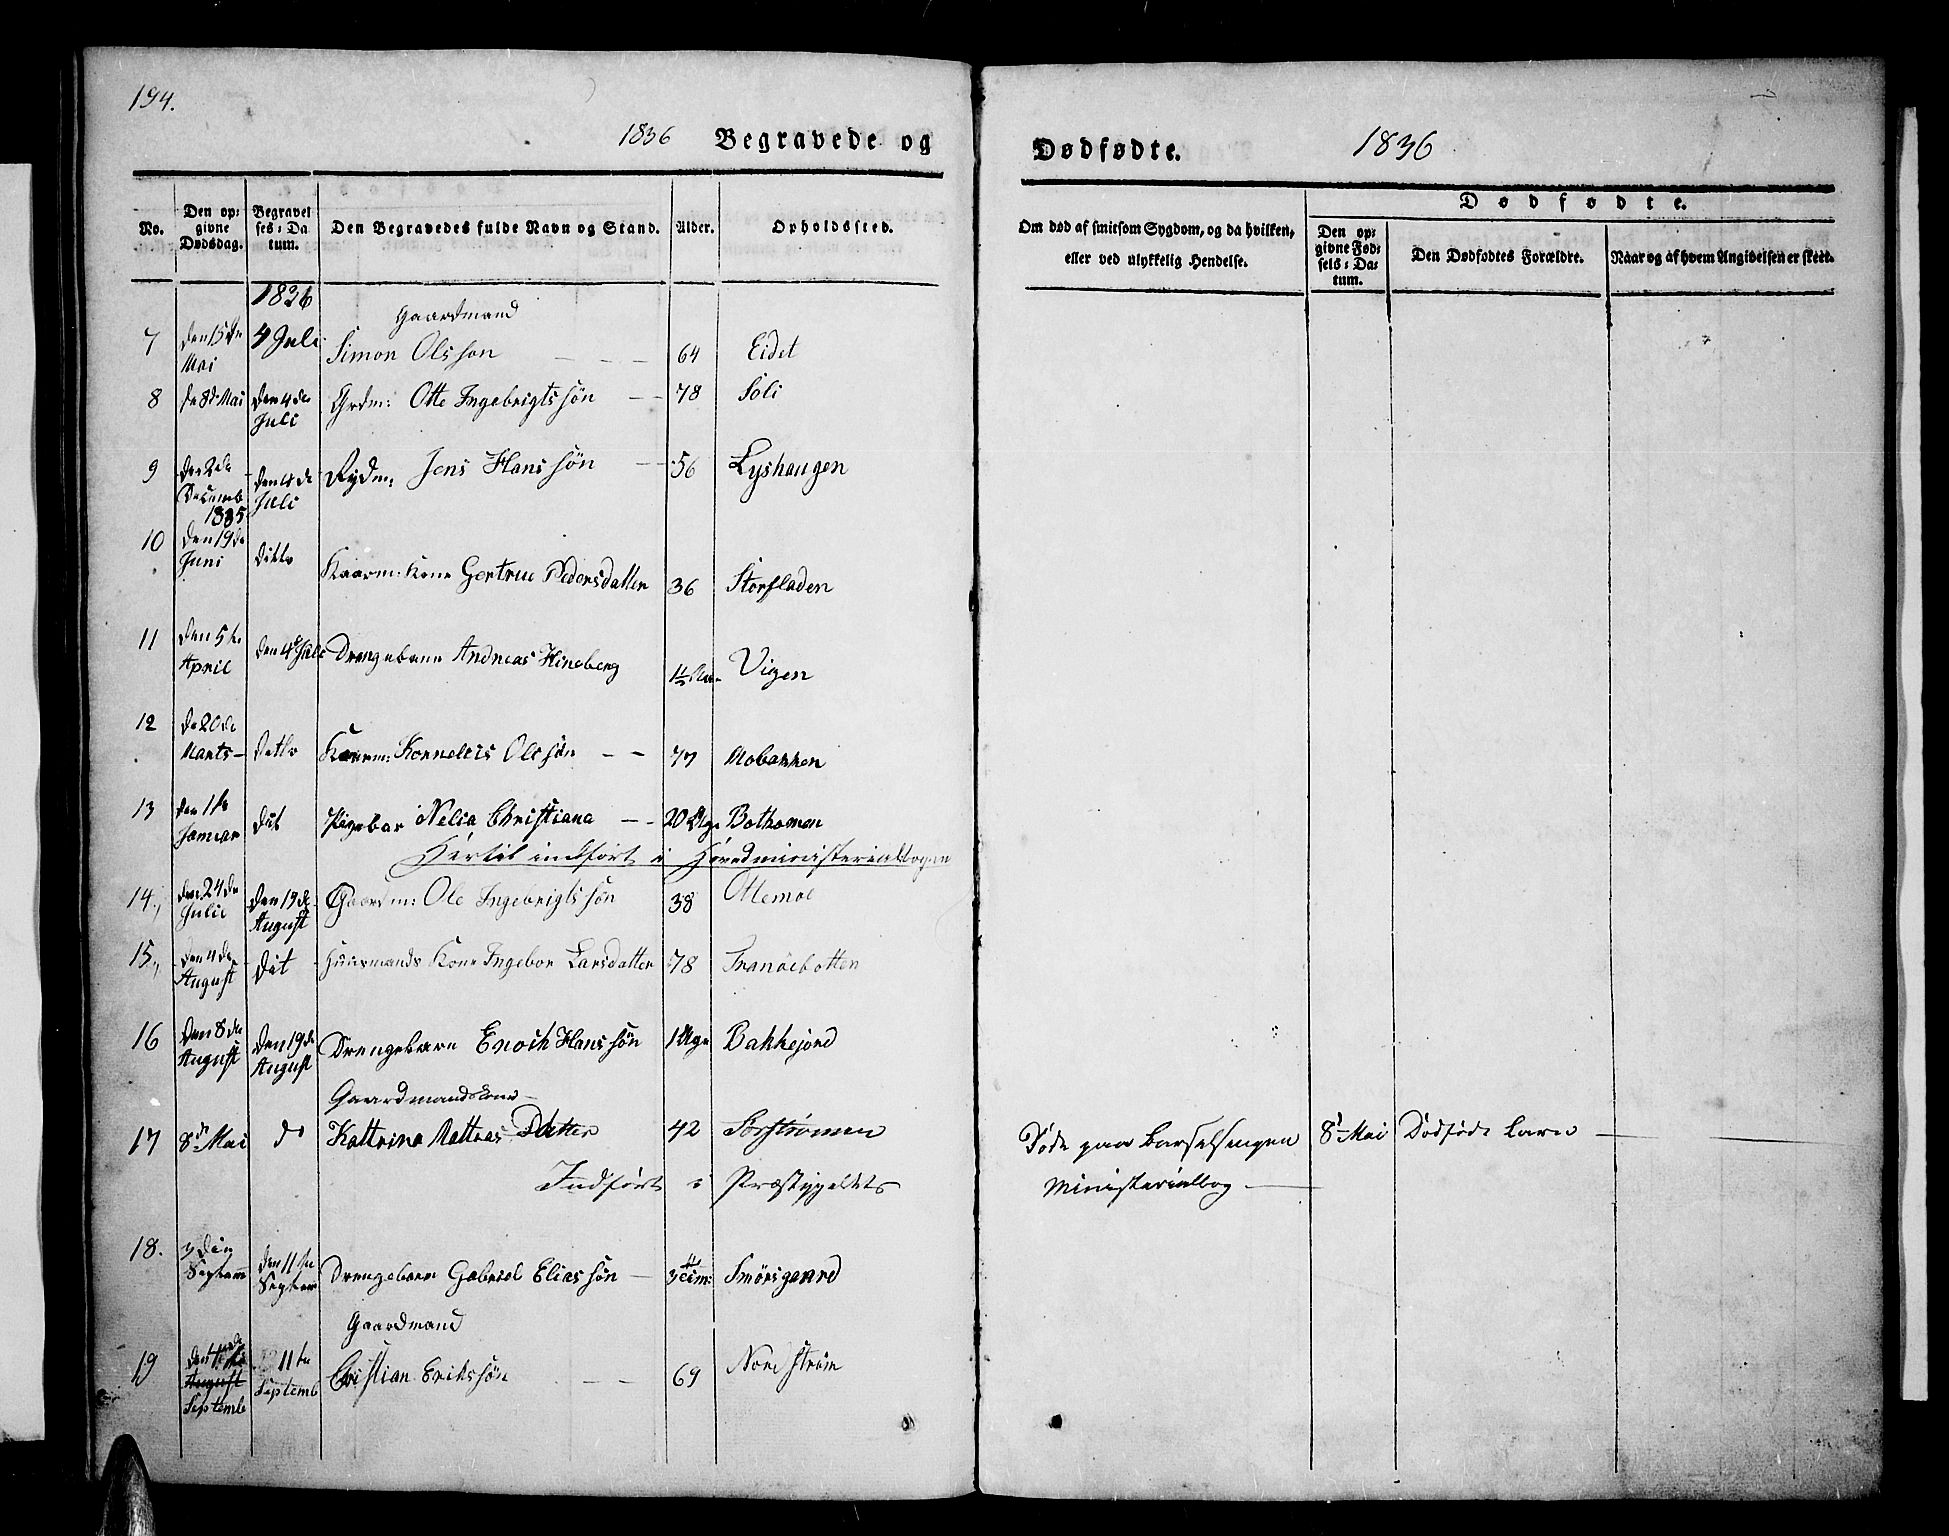 194.
1836 Begravede og
Dødfødte. 1836
No.
Den op:
givne
Dødsdag.
Begravel
ses: Da
tum.
Den Begravedes fulde Navn og Stand.
Alder.
Opholdssted.
Om død af smitsom Sygdom, og da hvilken,
eller ved ulykkelig Hendelse.
Dødfødte.
Den op:
givne Fød:
sels: Da:
tum.
Den Dødfødtes Forældre.
Naar og af hvem Angivelsen er skeet.
1836
Gaardmand
7 den 15de Mai 4 Juli Simon Olsson 64 Eidet
8 de 8de Mai Den 4de Juli Grdm: Otte Ingebrigtssøn 78 Soli
9 Den 2de Decemb 1835 den 4de Juli Rydm: Jens Hanssøn 56 Lyshaugen
10 den 19de Juni ditto Kaarm: Kone Gertrue Pedersdatter 36 Storsladen
11 den 5te April den 4de Juli Drengebarn Andreas Hineberg 1½ Aar Vigen
12 de 20de Marts ditto Kaarm: Kornelius Olssøn 77 Mobakken
13 den 1te Januar dit Pigebar Nelia Christiana 20 Uge Bothamen
Hertil indført i Hovedministerialbogen
14 den 24de Julii den 19de August Gaardm: Ole Ingebrigtssøn 38
15 den 4de August dit Huusmands Kone Ingebor Larsdatter 78 Tranöebotten
16 den 8de August den 19de August Drengebarn Enoch Hanssøn 1 Uge Bakkejord
Gaardmandskone
17 8de Mai do Kattrina Mattias Datter 42 Sørstrømen Døde paa Barselsengen 8de Mai Dødføde Barn
Indført i Præstegjeldets Ministerialbog
18. 3 den Septem den 11te Septem Drengebarn Gabriel Eliassøn 3 Smörsgaard
Gaardmand
19 den August Septemb 11te Septemb Cristian Erikssøn 69 Nordstrøm